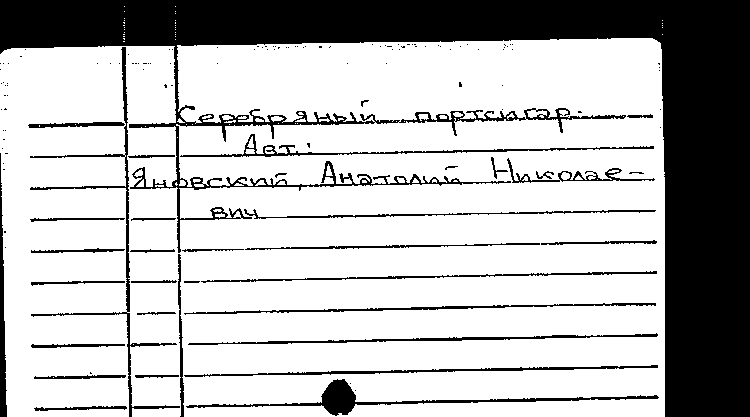 Серебряный портсигар.
Авт.:
Яновский, Анатолий Николае-
вич